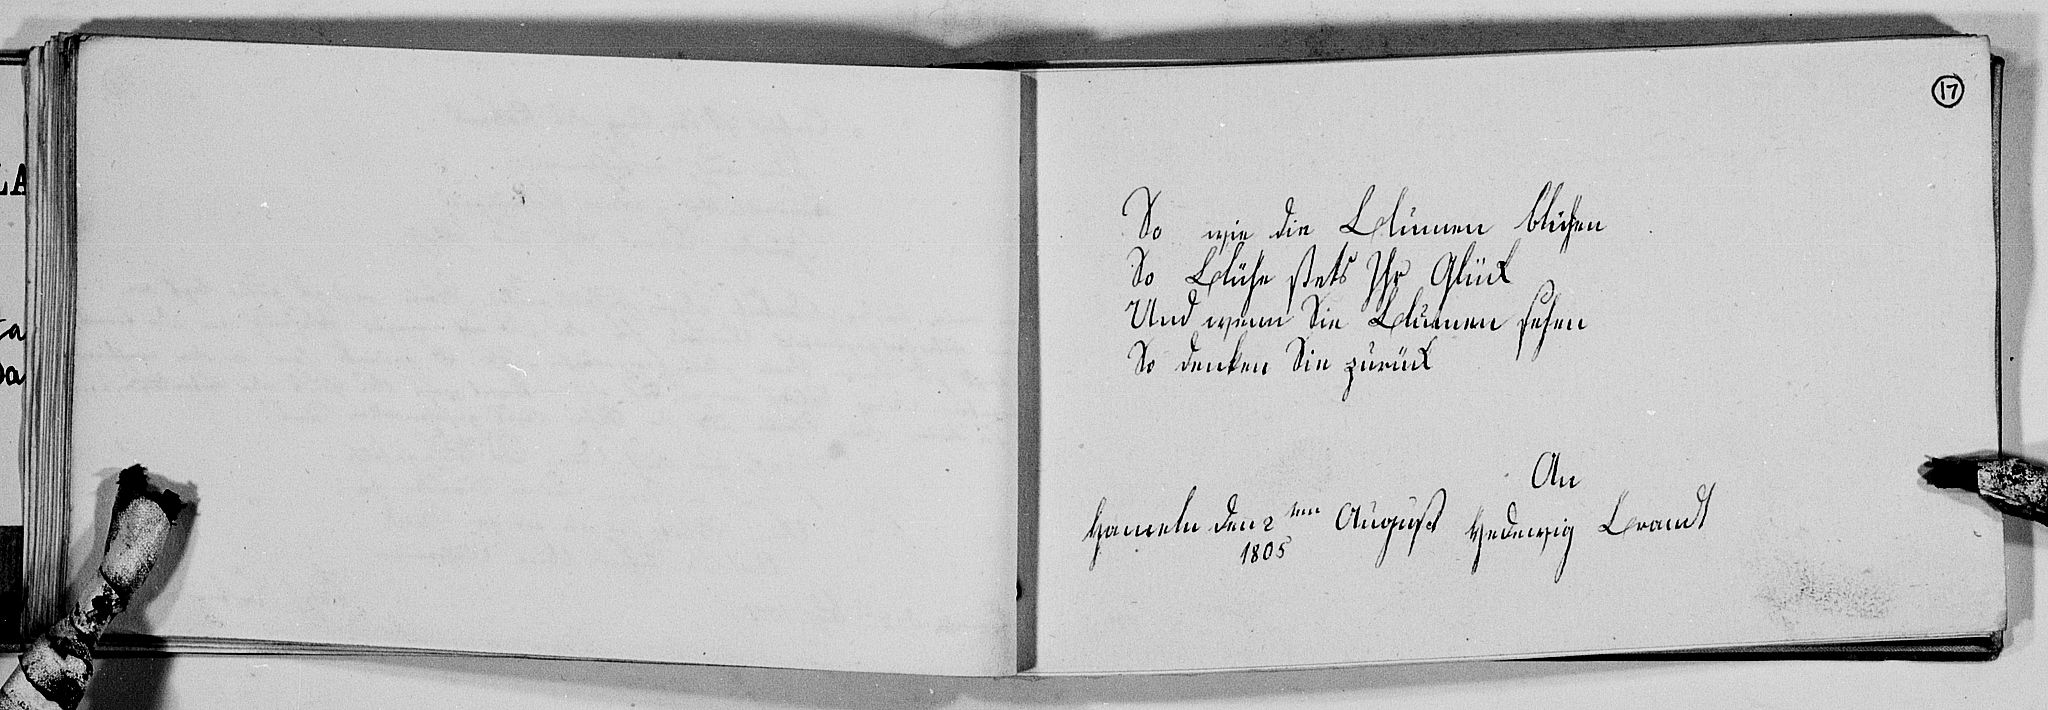 17
So wie die Blumen blühen
So Blühe stets Ihr Glück
Und wenn Sie Blumen sehen
So denken Sie zurück
An
Hameln den 2 ten August Hedewig Brandt
1805